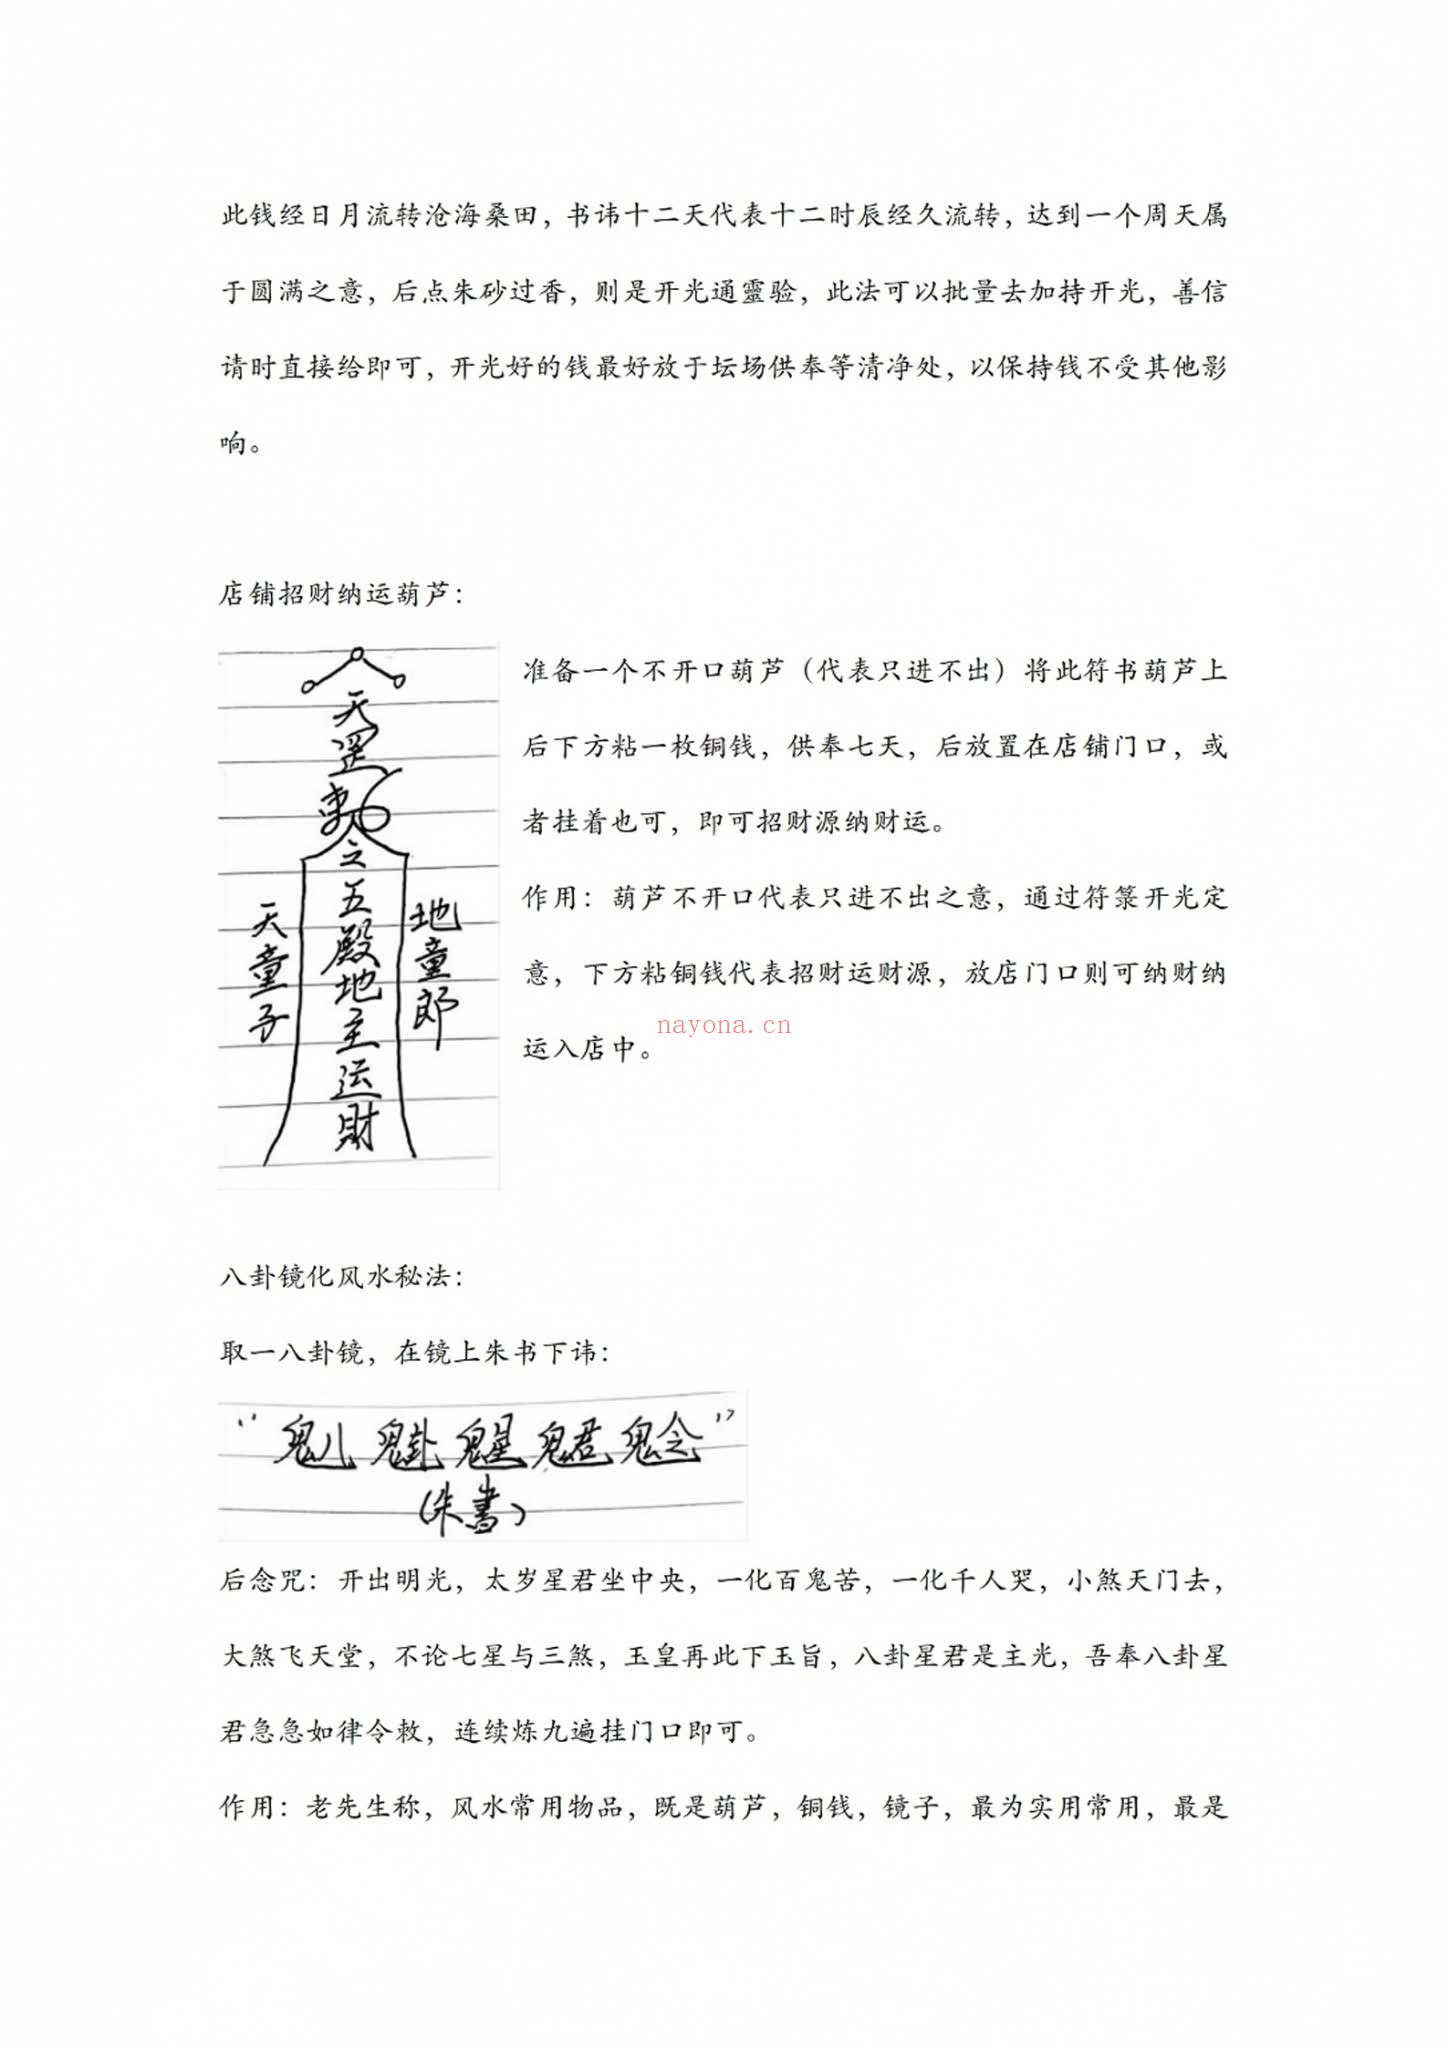 此钱经日月流转沧海桑田，书讳十二天代表十二时辰经久流转，达到一个周天属
于圆满之意，后点朱砂过香，则是开光通靈验，此法可以批量去加持开光，善信
请时直接给即可，开光好的钱最好放于坛场供奉等清净处，以保持钱不受其他影
响。
店铺招财纳运葫芦：
天罡
之五殿地主运財
天童子
地童郎
准备一个不开口葫芦（代表只进不出）将此符书葫芦上
后下方粘一枚铜钱，供奉七天，后放置在店铺门口，或
者挂着也可，即可招财源纳财运。
作用：葫芦不开口代表只进不出之意，通过符箓开光定
意，下方粘铜钱代表招财运财源，放店门口则可纳财纳
运入店中。
nayona.cn
八卦镜化风水秘法：
取一八卦镜，在镜上朱书下讳：
（朱書）
后念咒：开出明光，太岁星君坐中央，一化百鬼苦，一化千人哭，小煞天门去，
大煞飞天堂，不论七星与三煞，玉皇再此下玉旨，八卦星君是主光，吾奉八卦星
君急急如律令敕，连续炼九遍挂门口即可。
作用：老先生称，风水常用物品，既是葫芦，铜钱，镜子，最为实用常用，最是